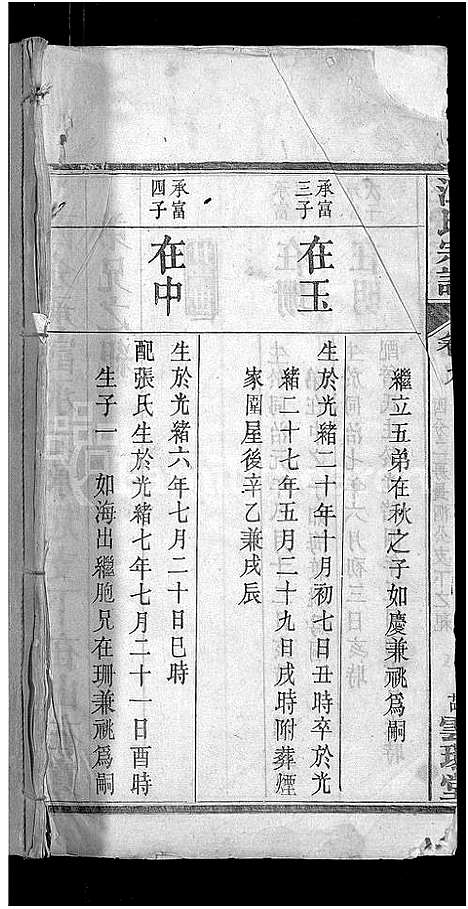 氏宗譜
卷九
雲瑞堂
繼立五弟在秋之子如慶兼祧爲嗣
承富三子
在玉
生於光緒二十年十月初七日丑時卒於光
緒二十七年五月二十九日戌時附葬煙
家園屋後辛乙兼戌辰
承富四子
在中
生於光緒六年七月二十日巳時
配張氏生於光緒七年七月二十一日酉時
生子一 如海出繼胞兄在珊兼祧爲嗣